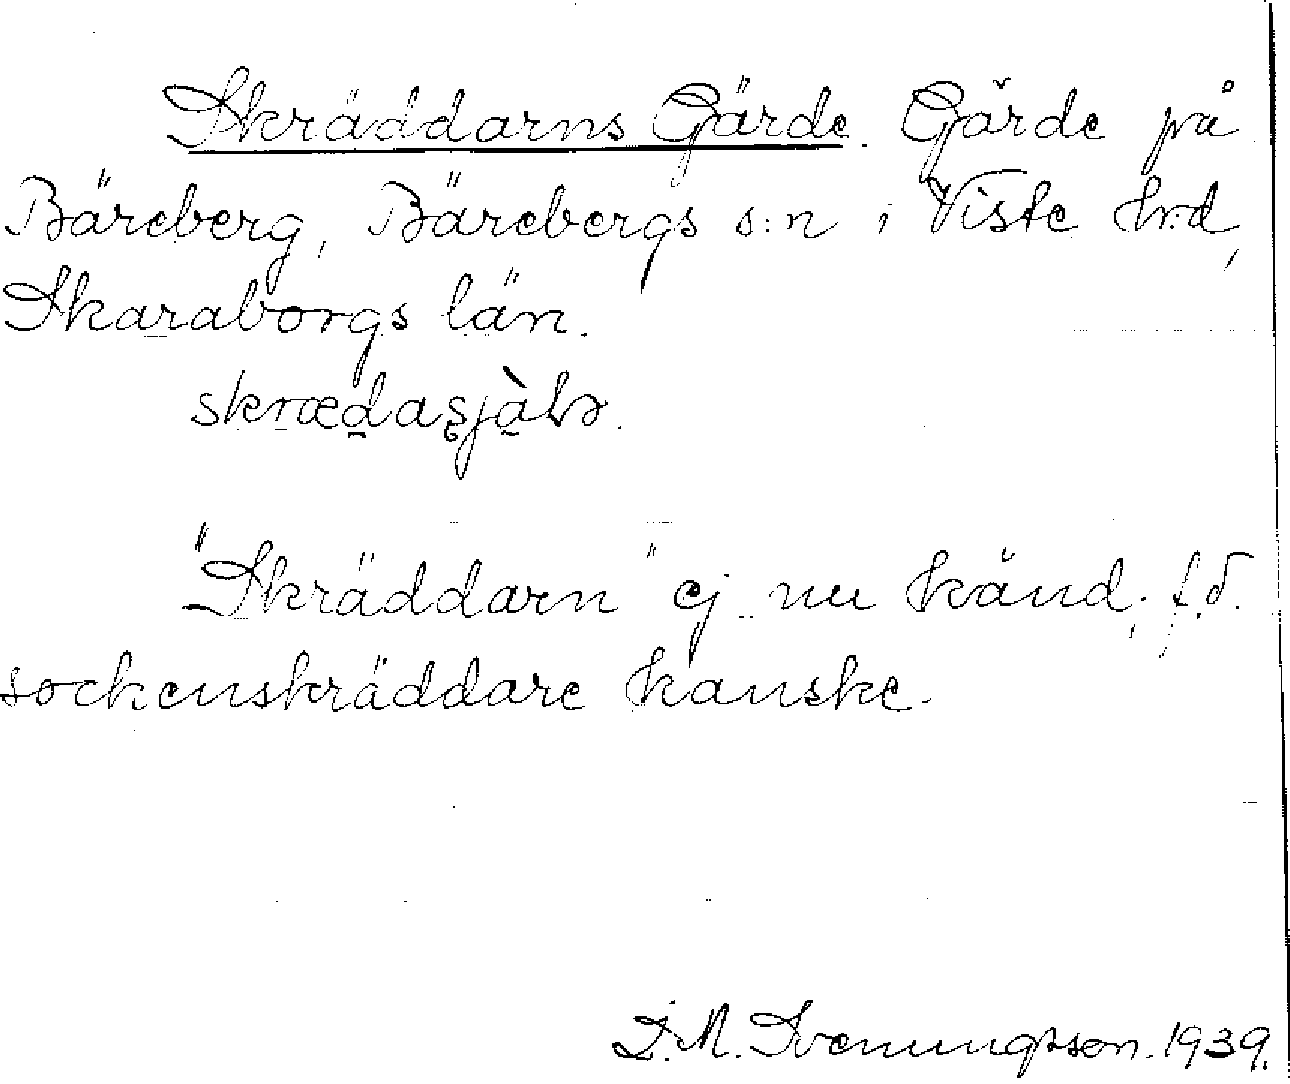 Skräddarns Gärde. Gärde på
Bäreberg, Bärebergs s:n i Viste hrd,
Skaraborgs län.
"Skräddarn" ej nu känd; f.d.
sockenskräddare kanske.
D. M. Svenungsson. 1939.